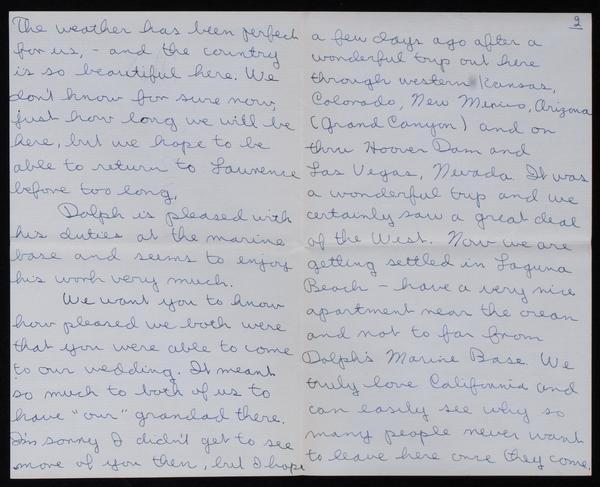 The weather has been perfect
for us, - and the country
is so beautiful here. We
don't know for sure now,
just how long we will be
here, but we hope to be
able to return to Lawrence
before too long.
Dolph is pleased with
his duties at the marine
base and seems to enjoy
his work very much.
We want you to know
how pleased we both were
that you were able to come
to our wedding. It meant
so much to both of us to
have "our" grandad there.
I'm sorry I didn't get to see
more of you then, but I hope
2
a few days ago after a
wonderful trip out here
through western Kansas,
Colorado, New Mexico, Arizona
(Grand Canyon) and on
thru Hoover Dam and
Las Vegas, Nevada. It was
a wonderful trip and we
certainly saw a great deal
of the West. Now we are
getting settled in Laguna
Beach - have a very nice
apartment near the ocean
and not to far from
Dolph's Marine Base. We
truly love California and
can easily see why so
many people never want
to leave here once they come.